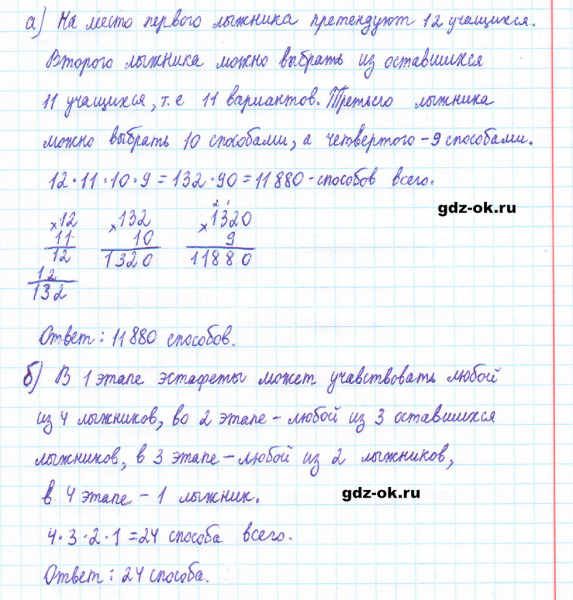 а) На место первого лыжника претендуют 12 учащихся.
Второго лыжника можно выбрать из оставшихся
11 учащихся, т.е 11 вариантов. Третьего лыжника
можно выбрать 10 способами, а четвертого - 9 способами.
12 · 11 · 10 · 9 = 132 · 90 = 11 880 - способов всего.
gdz-ok.ru
2 1
× 12 × 132 × 1320
11 10 9
12 1320 11880
12
132
Ответ: 11 880 способов.
б) В 1 этапе эстафеты может учавствовать любой
из 4 лыжников, во 2 этапе - любой из 3 оставшихся
лыжников, в 3 этапе - любой из 2 лыжников,
в 4 этапе - 1 лыжник.
gdz-ok.ru
4 · 3 · 2 · 1 = 24 способа всего.
Ответ: 24 способа.